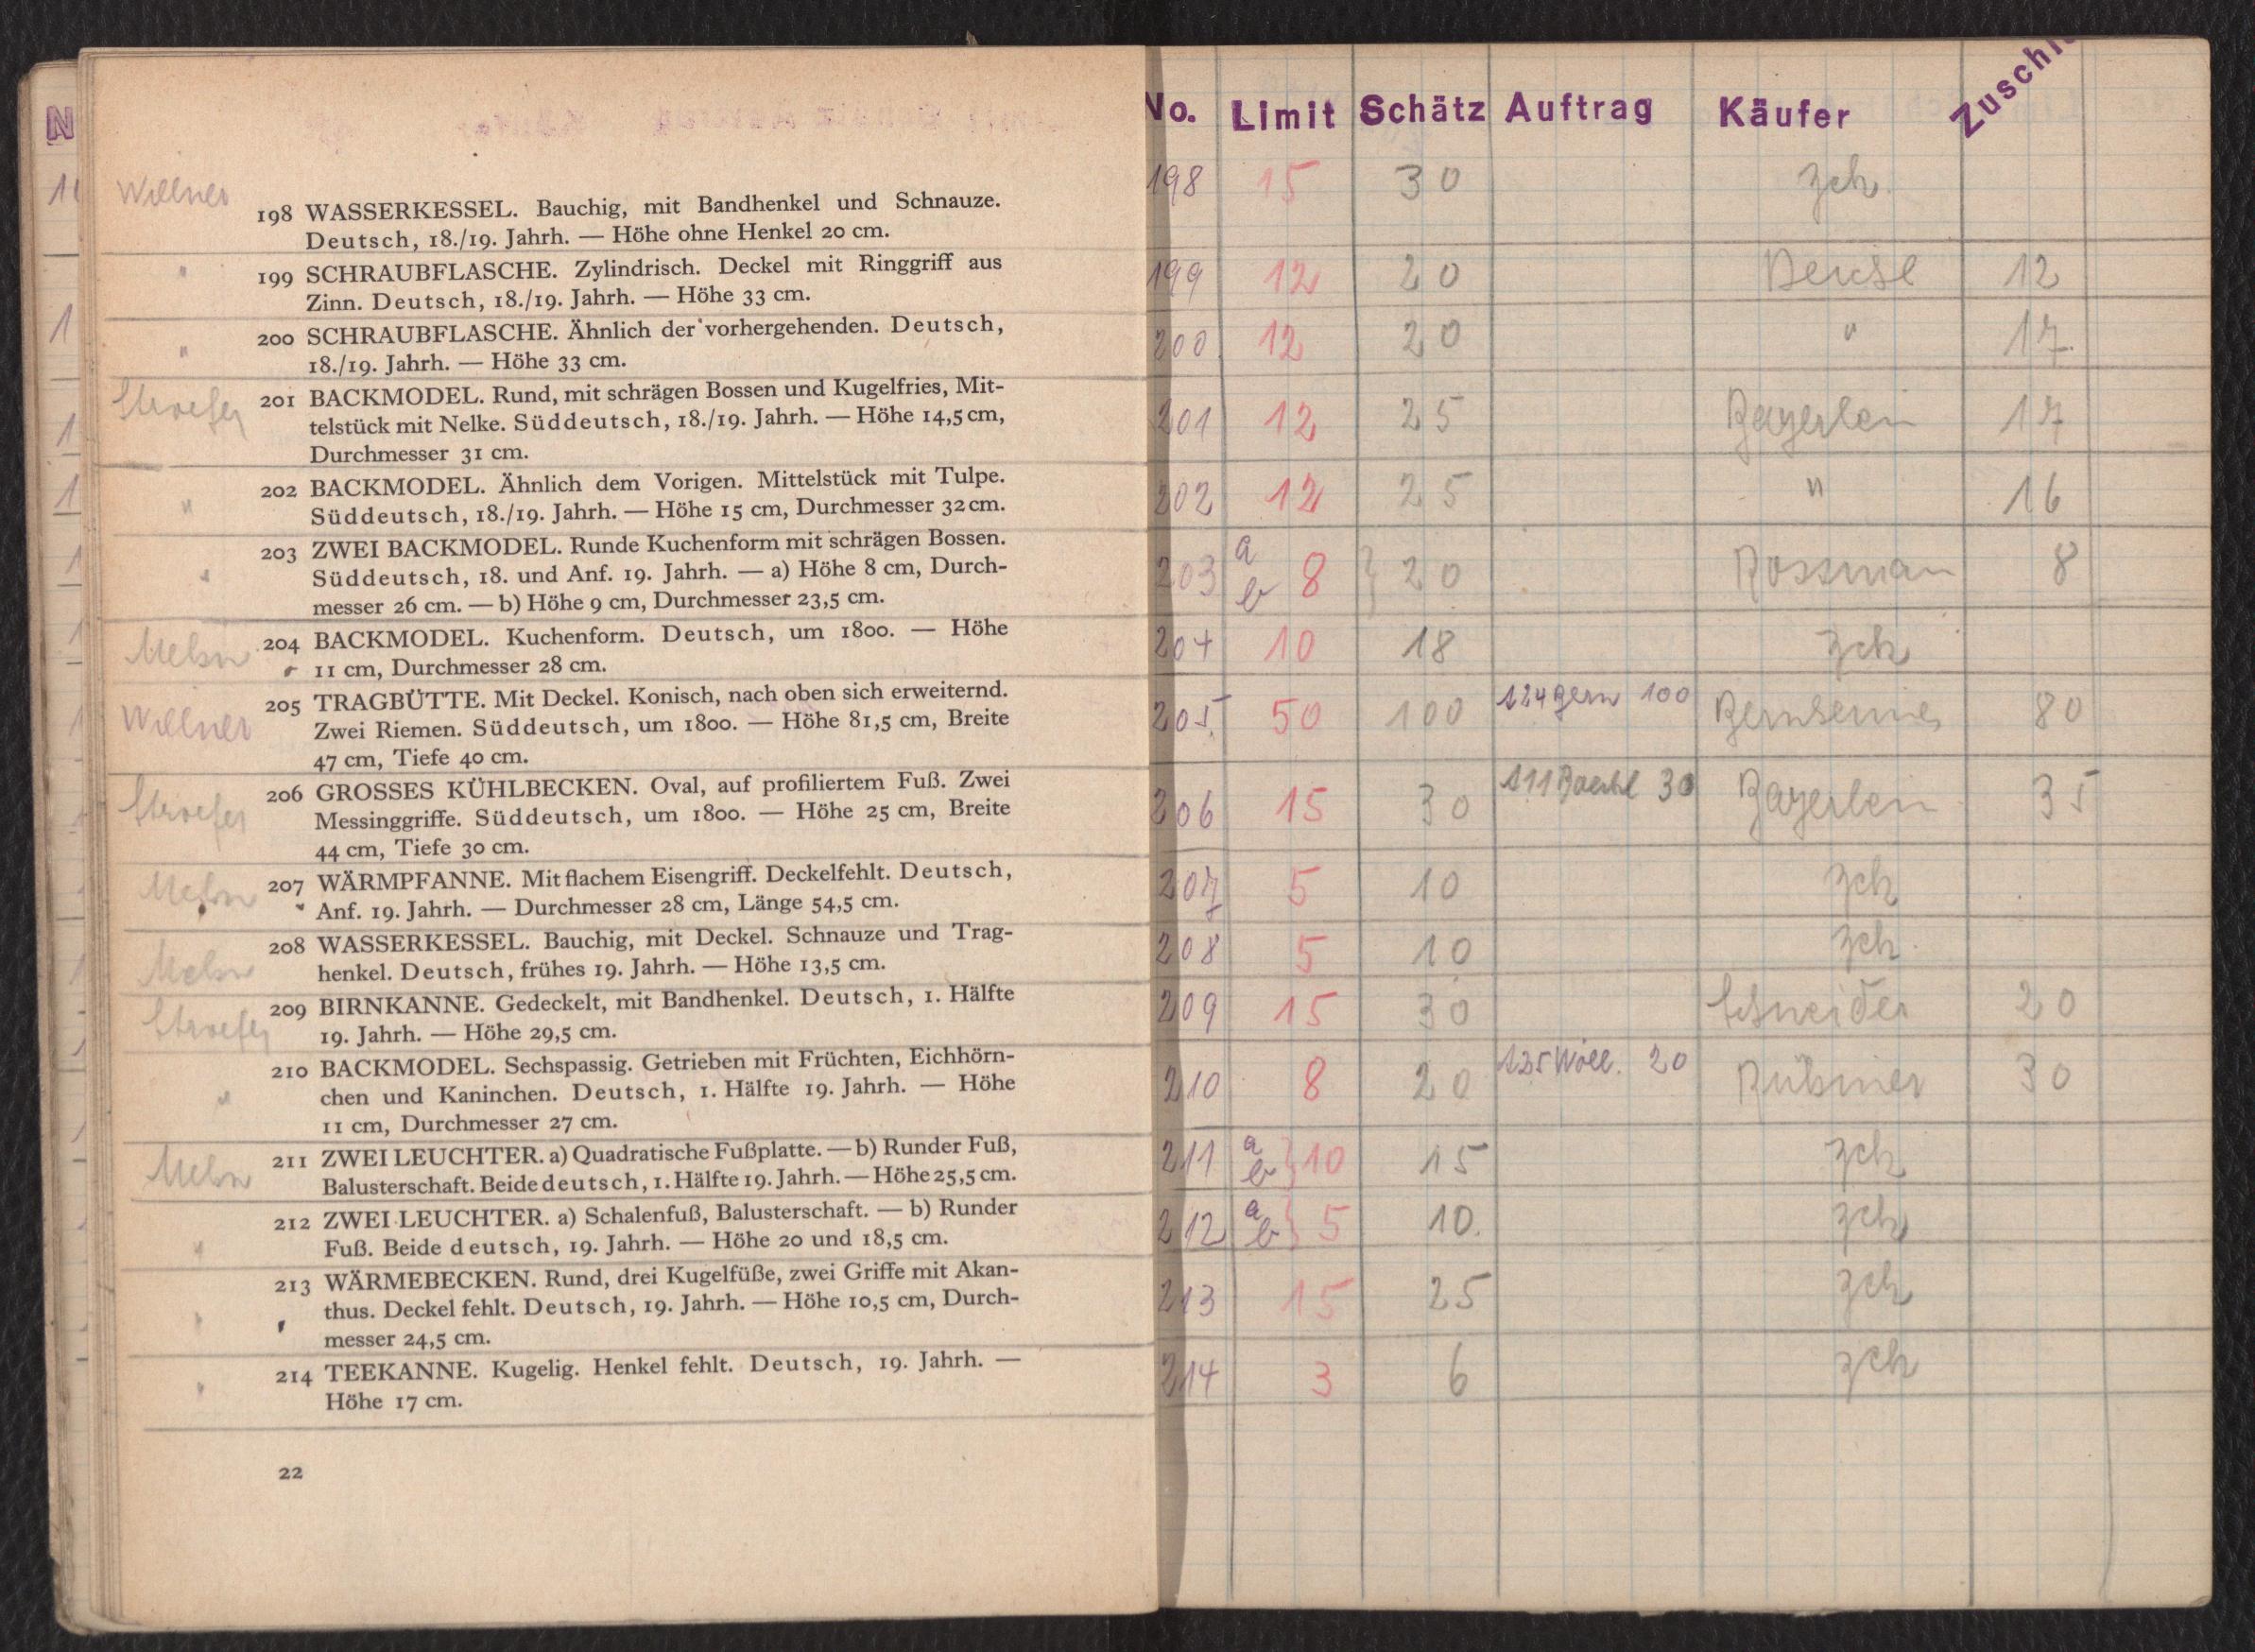 Willner
198 WASSERKESSEL. Bauchig, mit Bandhenkel und Schnauze.
Deutsch, 18./19. Jahrh. — Höhe ohne Henkel 20 cm.
" 199 SCHRAUBFLASCHE. Zylindrisch. Deckel mit Ringgriff aus
Zinn. Deutsch, 18./19. Jahrh. — Höhe 33 cm.
" 200 SCHRAUBFLASCHE. Ähnlich der vorhergehenden. Deutsch,
18./19. Jahrh. — Höhe 33 cm.
Stroefer 201 BACKMODEL. Rund, mit schrägen Bossen und Kugelfries, Mit-
telstück mit Nelke. Süddeutsch, 18./19. Jahrh. — Höhe 14,5 cm,
Durchmesser 31 cm.
" 202 BACKMODEL. Ähnlich dem Vorigen. Mittelstück mit Tulpe.
Süddeutsch, 18./19. Jahrh. — Höhe 15 cm, Durchmesser 32 cm.
" 203 ZWEI BACKMODEL. Runde Kuchenform mit schrägen Bossen.
Süddeutsch, 18. und Anf. 19. Jahrh. — a) Höhe 8 cm, Durch-
messer 26 cm. — b) Höhe 9 cm, Durchmesser 23,5 cm.
204 BACKMODEL. Kuchenform. Deutsch, um 1800. — Höhe
11 cm, Durchmesser 28 cm.
Willner 205 TRAGBÜTTE. Mit Deckel. Konisch, nach oben sich erweiternd.
Zwei Riemen. Süddeutsch, um 1800. — Höhe 81,5 cm, Breite
47 cm, Tiefe 40 cm.
Stroefer 206 GROSSES KÜHLBECKEN. Oval, auf profiliertem Fuß. Zwei
Messinggriffe. Süddeutsch, um 1800. — Höhe 25 cm, Breite
44 cm, Tiefe 30 cm.
207 WÄRMPFANNE. Mit flachem Eisengriff. Deckel fehlt. Deutsch,
Anf. 19. Jahrh. — Durchmesser 28 cm, Länge 54,5 cm.
208 WASSERKESSEL. Bauchig, mit Deckel. Schnauze und Trag-
henkel. Deutsch, frühes 19. Jahrh. — Höhe 13,5 cm.
Stroefer 209 BIRNKANNE. Gedeckelt, mit Bandhenkel. Deutsch, 1. Hälfte
19. Jahrh. — Höhe 29,5 cm.
" 210 BACKMODEL. Sechspassig. Getrieben mit Früchten, Eichhörn-
chen und Kaninchen. Deutsch, 1. Hälfte 19. Jahrh. — Höhe
11 cm, Durchmesser 27 cm.
211 ZWEI LEUCHTER. a) Quadratische Fußplatte. — b) Runder Fuß,
Balusterschaft. Beide deutsch, 1. Hälfte 19. Jahrh. — Höhe 25,5 cm.
" 212 ZWEI LEUCHTER. a) Schalenfuß, Balusterschaft. — b) Runder
Fuß. Beide deutsch, 19. Jahrh. — Höhe 20 und 18,5 cm.
" 213 WÄRMEBECKEN. Rund, drei Kugelfüße, zwei Griffe mit Akan-
thus. Deckel fehlt. Deutsch, 19. Jahrh. — Höhe 10,5 cm, Durch-
messer 24,5 cm.
" 214 TEEKANNE. Kugelig. Henkel fehlt. Deutsch, 19. Jahrh. —
Höhe 17 cm.
22
No. Limit Schätz Auftrag Käufer
198 15 30 zck
199 12 20 12
200 12 20 " 17
201 12 25 Bayerlein 17
202 12 25 " 16
203 a b 8 20 Rossman 8
204 10 18 zck
205 50 100 124 100 80
206 15 30 111 30 Bayerlein 35
207 5 10 zck
208 5 10 zck
209 15 30 Schneider 20
210 8 20 125 Woll. 20 30
211 a b 10 15 zck
212 a b 5 10 zck
213 15 25 zck
214 3 6 zck